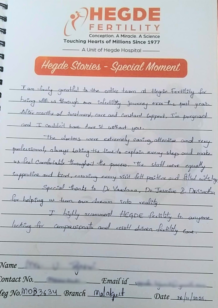 HEGDE
FERTILITY
Conception, A Miracle, A Science
Touching Hearts of Millions Since 1977
A Unit of Hegde Hospital
Hegde Stories - Special Moment
I am truly grateful to the entire team at Hegde Fertility for
being with us through our infertility journey over the past year.
After months of treatment care and constant support, I'm pregnant
and I couldn't have done it without you.
The doctors were incredibly caring attentive and very
professional, always taking the time to explain every step and make
me feel comfortable throughout the process. The staff were equally
supportive and kind, ensuring every visit felt positive and
Special thanks to Dr Vandana, Dr & Devendra
for helping us turn our dreams into reality.
I highly recommend HEGDE FERTILITY to anyone
looking for compassionate and result driven fertility care.
Name
Contact No. Email id
Reg No. Branch Malakpet Date